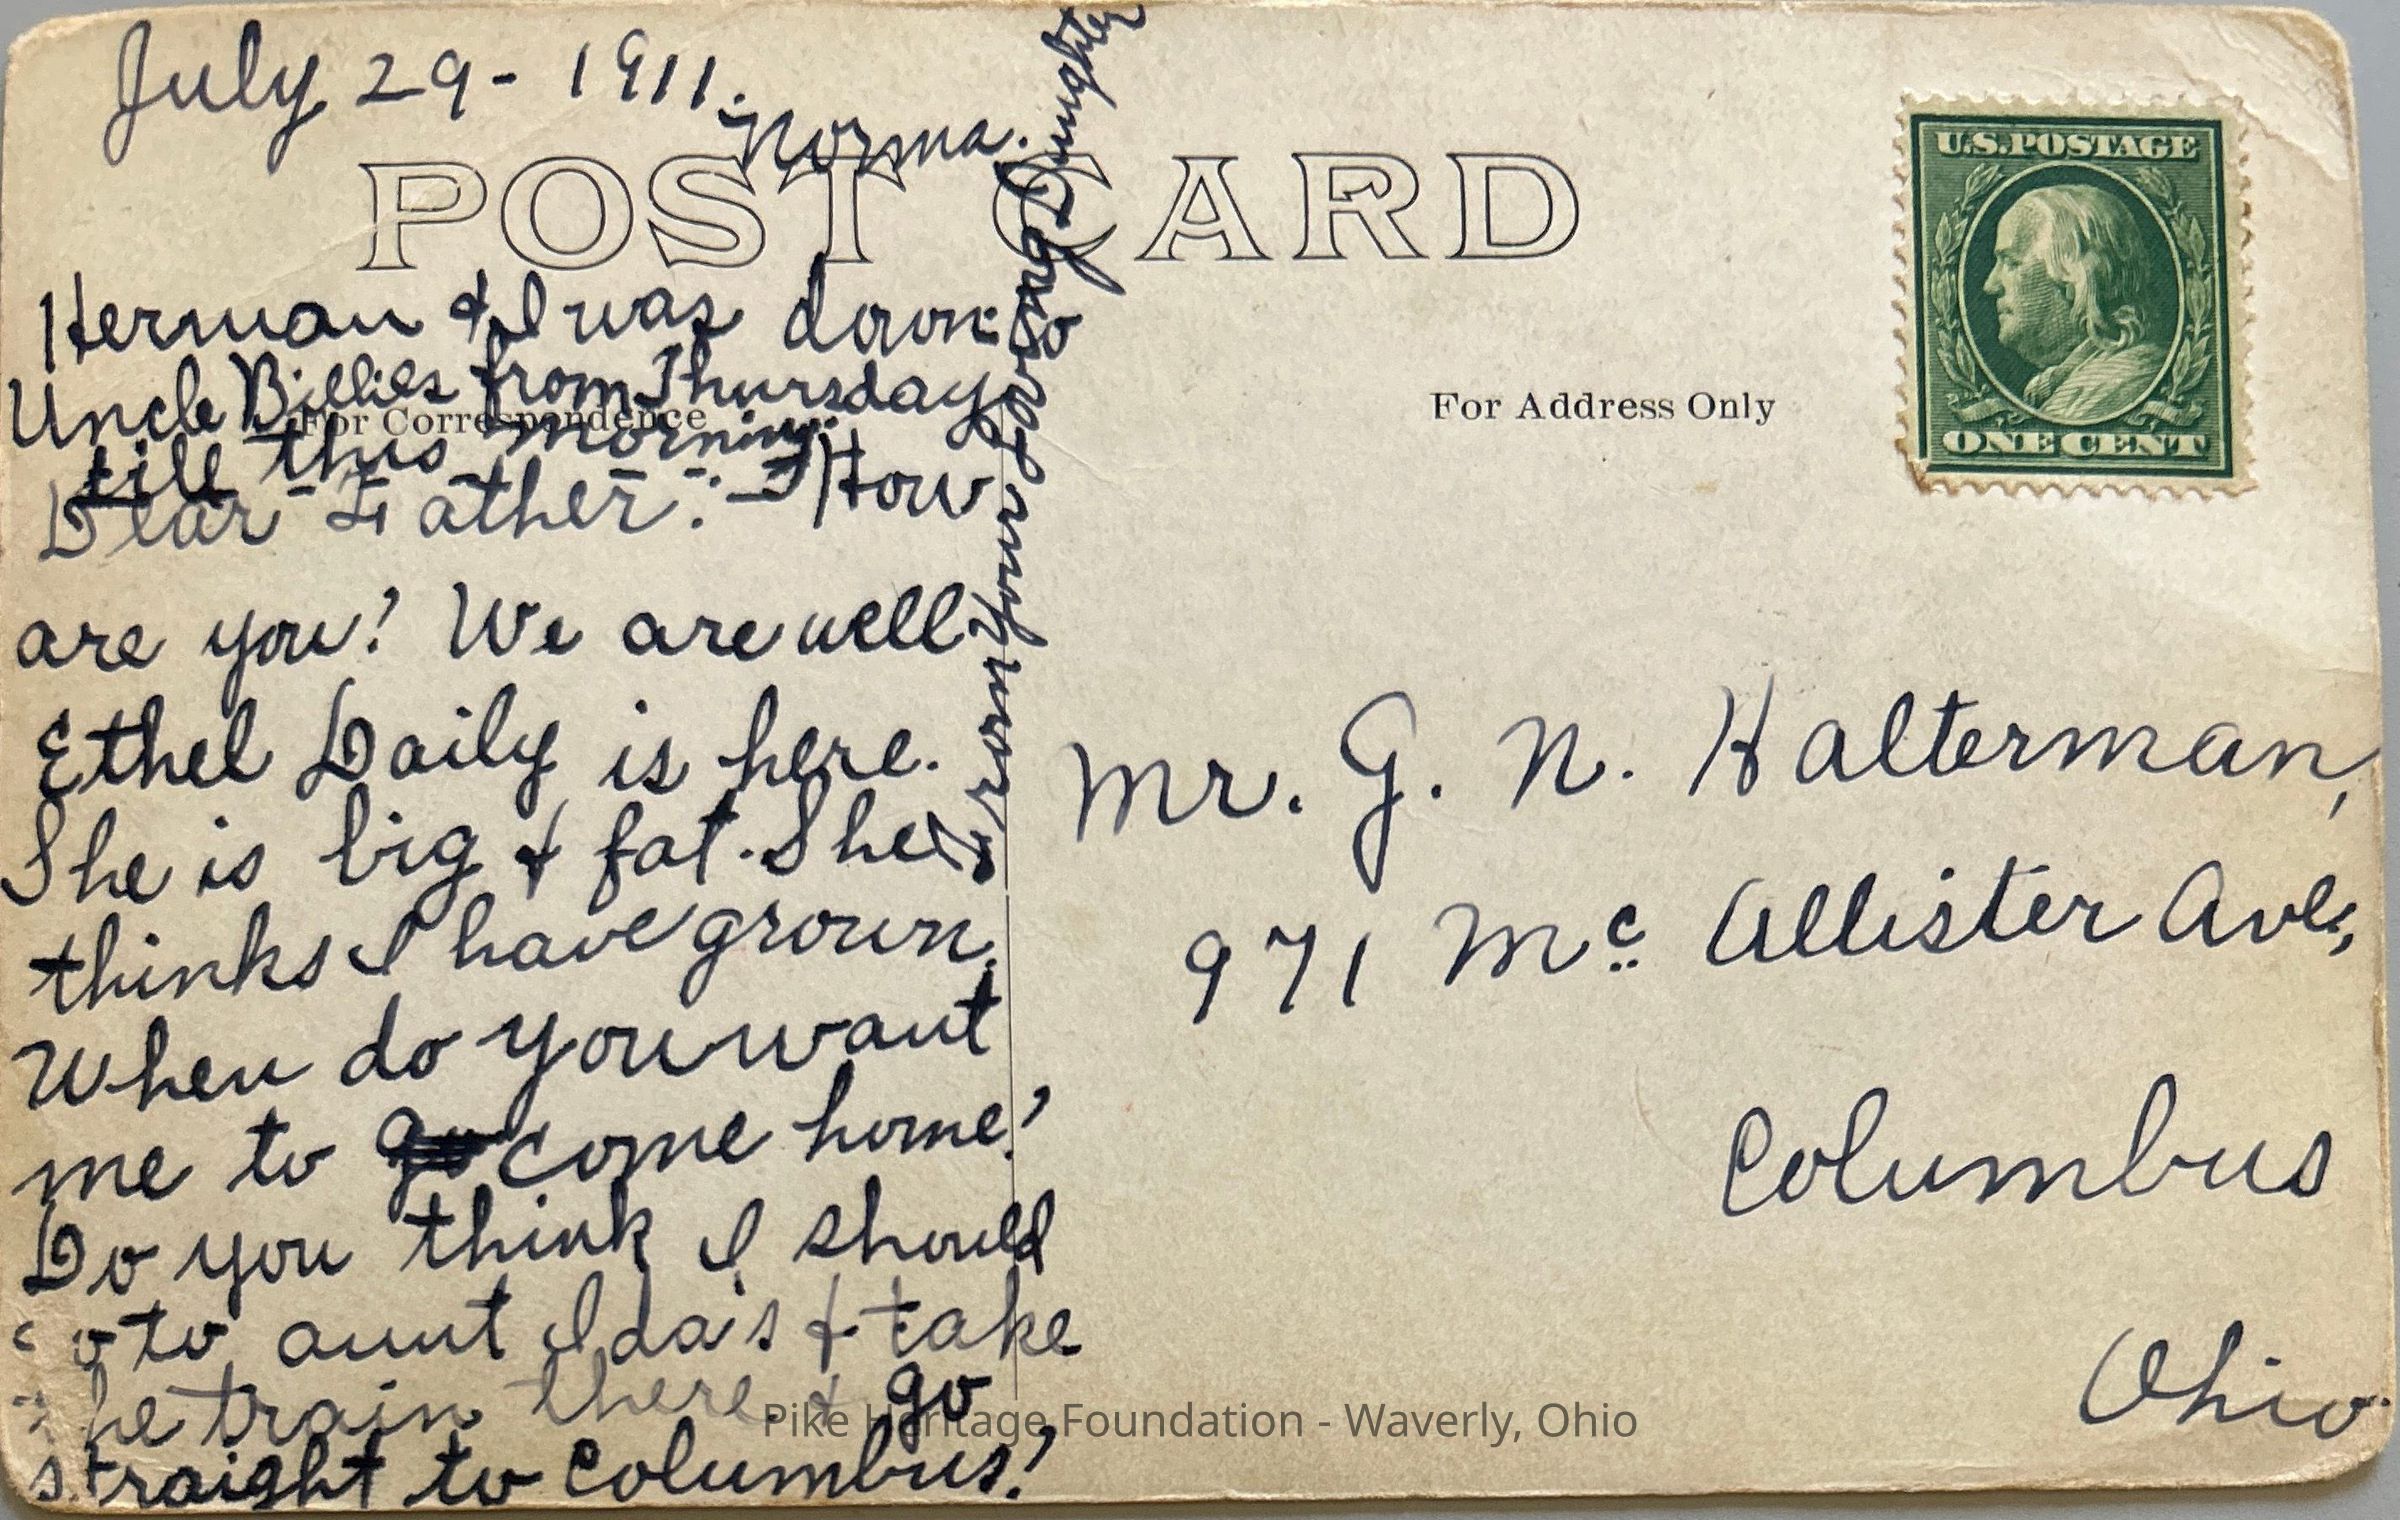 July 29- 1911.
Norma.
POST CARD
Herman & I was down to
Uncle Billies from Thursday
till this morning.
For Correspondence
Dear Father:- How
are you? We are well
Ethel Daily is here.
She is big & fat. She
thinks I have grown.
When do you want
me to go come home?
Do you think I should
go to aunt Ida's & take
the train there & go
straight to Columbus?
From Your Loving Daughter
U.S. POSTAGE
ONE CENT
For Address Only
Mr. G. N. Halterman,
971 Mc Allister Ave.,
Columbus
Ohio.
Pike Heritage Foundation - Waverly, Ohio